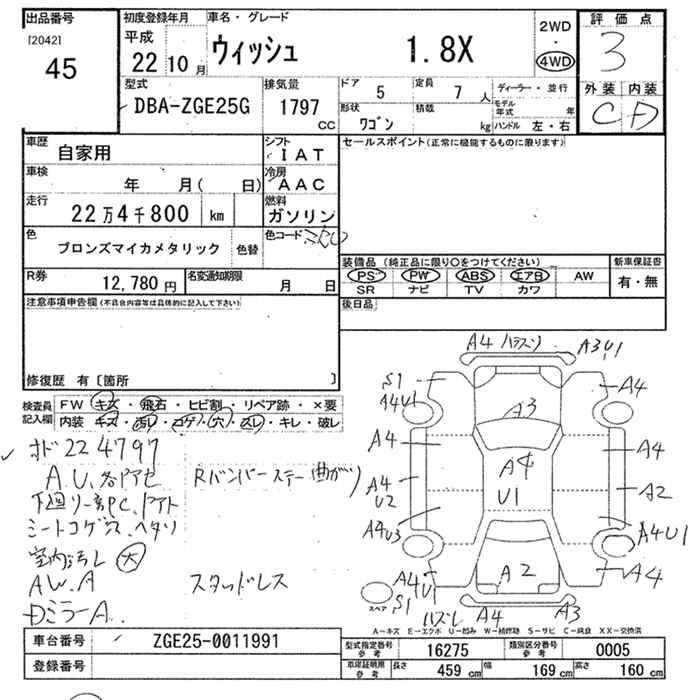 出品番号
[2042]
45
初度登録年月
平成
22 10 月
車名・グレード
ウィッシュ 1.8X
2WD
・
4WD
評価点
3
外装 内装
C D
型式
DBA-ZGE25G
排気量
1797 CC
ドア 5
定員 7 人
形状 ワゴン
積載 kg
ディーラー・並行
モデル年式 年
ハンドル 左・右
車歴 自家用
シフト IAT
車検 年 月( 日)
冷房 AAC
走行 22万4千800 km
燃料 ガソリン
色 ブロンズマイカメタリック 色替
色コード
R券 12,780 円
名変通知期限 月 日
セールスポイント(正常に機能するものに限ります)
装備品(純正品に限り○をつけてください)
PS PW ABS エアB AW
SR ナビ TV カワ
新車保証書
有・無
後日品
注意事項申告欄(不具合内容等は具体的に記入して下さい)
修復歴 有〔箇所 〕
検査員記入欄
FW キズ・飛石・ヒビ割・リペア跡・×要
内装 キズ・汚レ・コゲ・穴・スレ・キレ・破レ
224797
A.U.各ドアセ
Rバンパーステー曲がり
シートコゲ穴、ヘタリ
室内汚レ 大
AW.A
スタッドレス
DミラーA.
A4 ハガスリ A3U1
S1
A4U1
A4
A3
A4
A4
A4
U1
A4
U2
A2
A4U3
A4U1
A4U1
S1
A2
A4
スペア
ハズレ A4 A3
A-キズ E-エクボ U-凹み W-補修跡 S-サビ C-腐食 XX-交換済
車台番号 ZGE25-0011991
登録番号
型式指定番号 参考 16275
類別区分番号 参考 0005
車庫証明用 参考 長さ 459 cm 幅 169 cm 高さ 160 cm